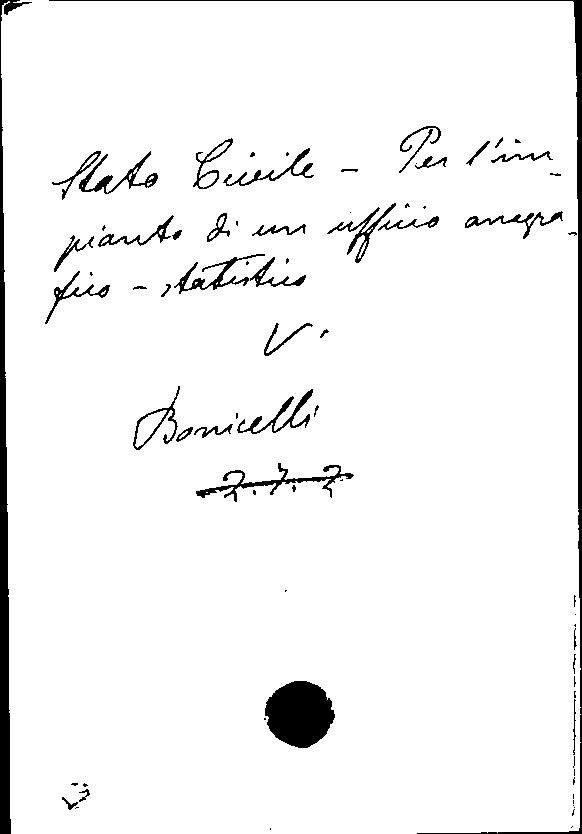 Stato Civile - Per l'im-
pianto di un ufficio anagra-
fico - statistico
V.
Bonicelli
2.7.2